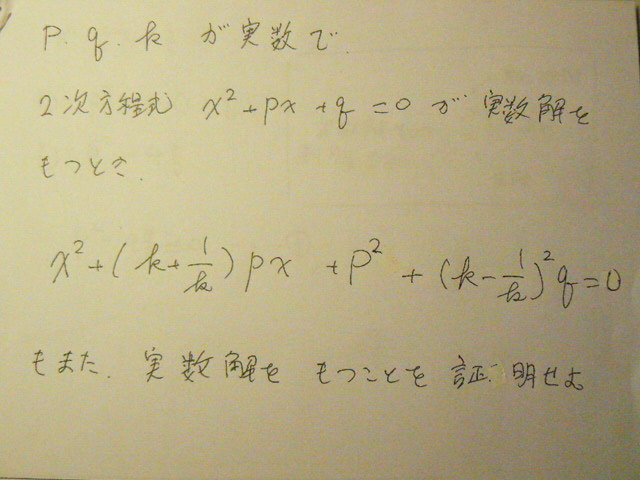 P. q. k が実数で.
2次方程式 x² + px + q = 0 が 実数解を
もつとき.
x² + (k + 1/k) px + p² + (k - 1/k)² q = 0
もまた. 実数解を もつことを 証明せよ